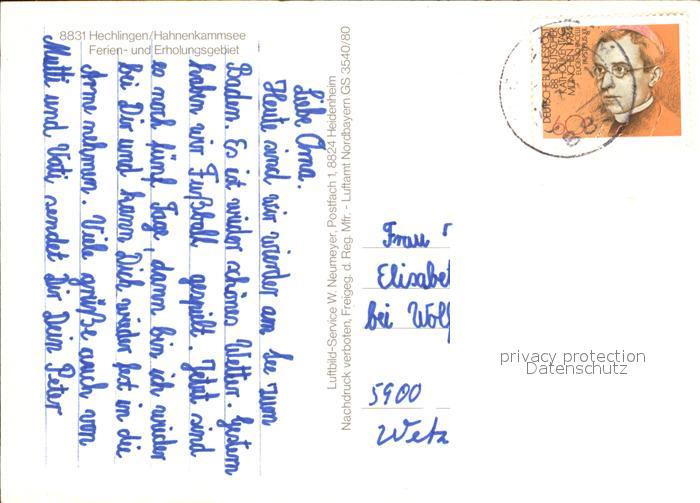 8831 Hechlingen/Hahnenkammsee
Ferien- und Erholungsgebiet
Liebe Oma.
Heute sind wir wieder am See zum
Baden. Es ist wieder schönes Wetter. Gestern
haben wir Fußball gespielt. Jetzt sind
es noch fünf Tage, dann bin ich wieder
bei Dir und kann Dich wieder fest in die
Arme nehmen. Viele grüße auch von
Mutti und Vati, sendet Dir Dein Peter
Luftbild-Service W. Neumeyer, Postfach 1, 8824 Heidenheim
Nachdruck verboten, Freigeg. d. Reg. Mfr. - Luftamt Nordbayern GS 3540/80
DEUTSCHE BUNDESPOST
MÜNCHEN 1984
Frau
Elisabet
bei Wolf
5900
Wetz
privacy protection
Datenschutz